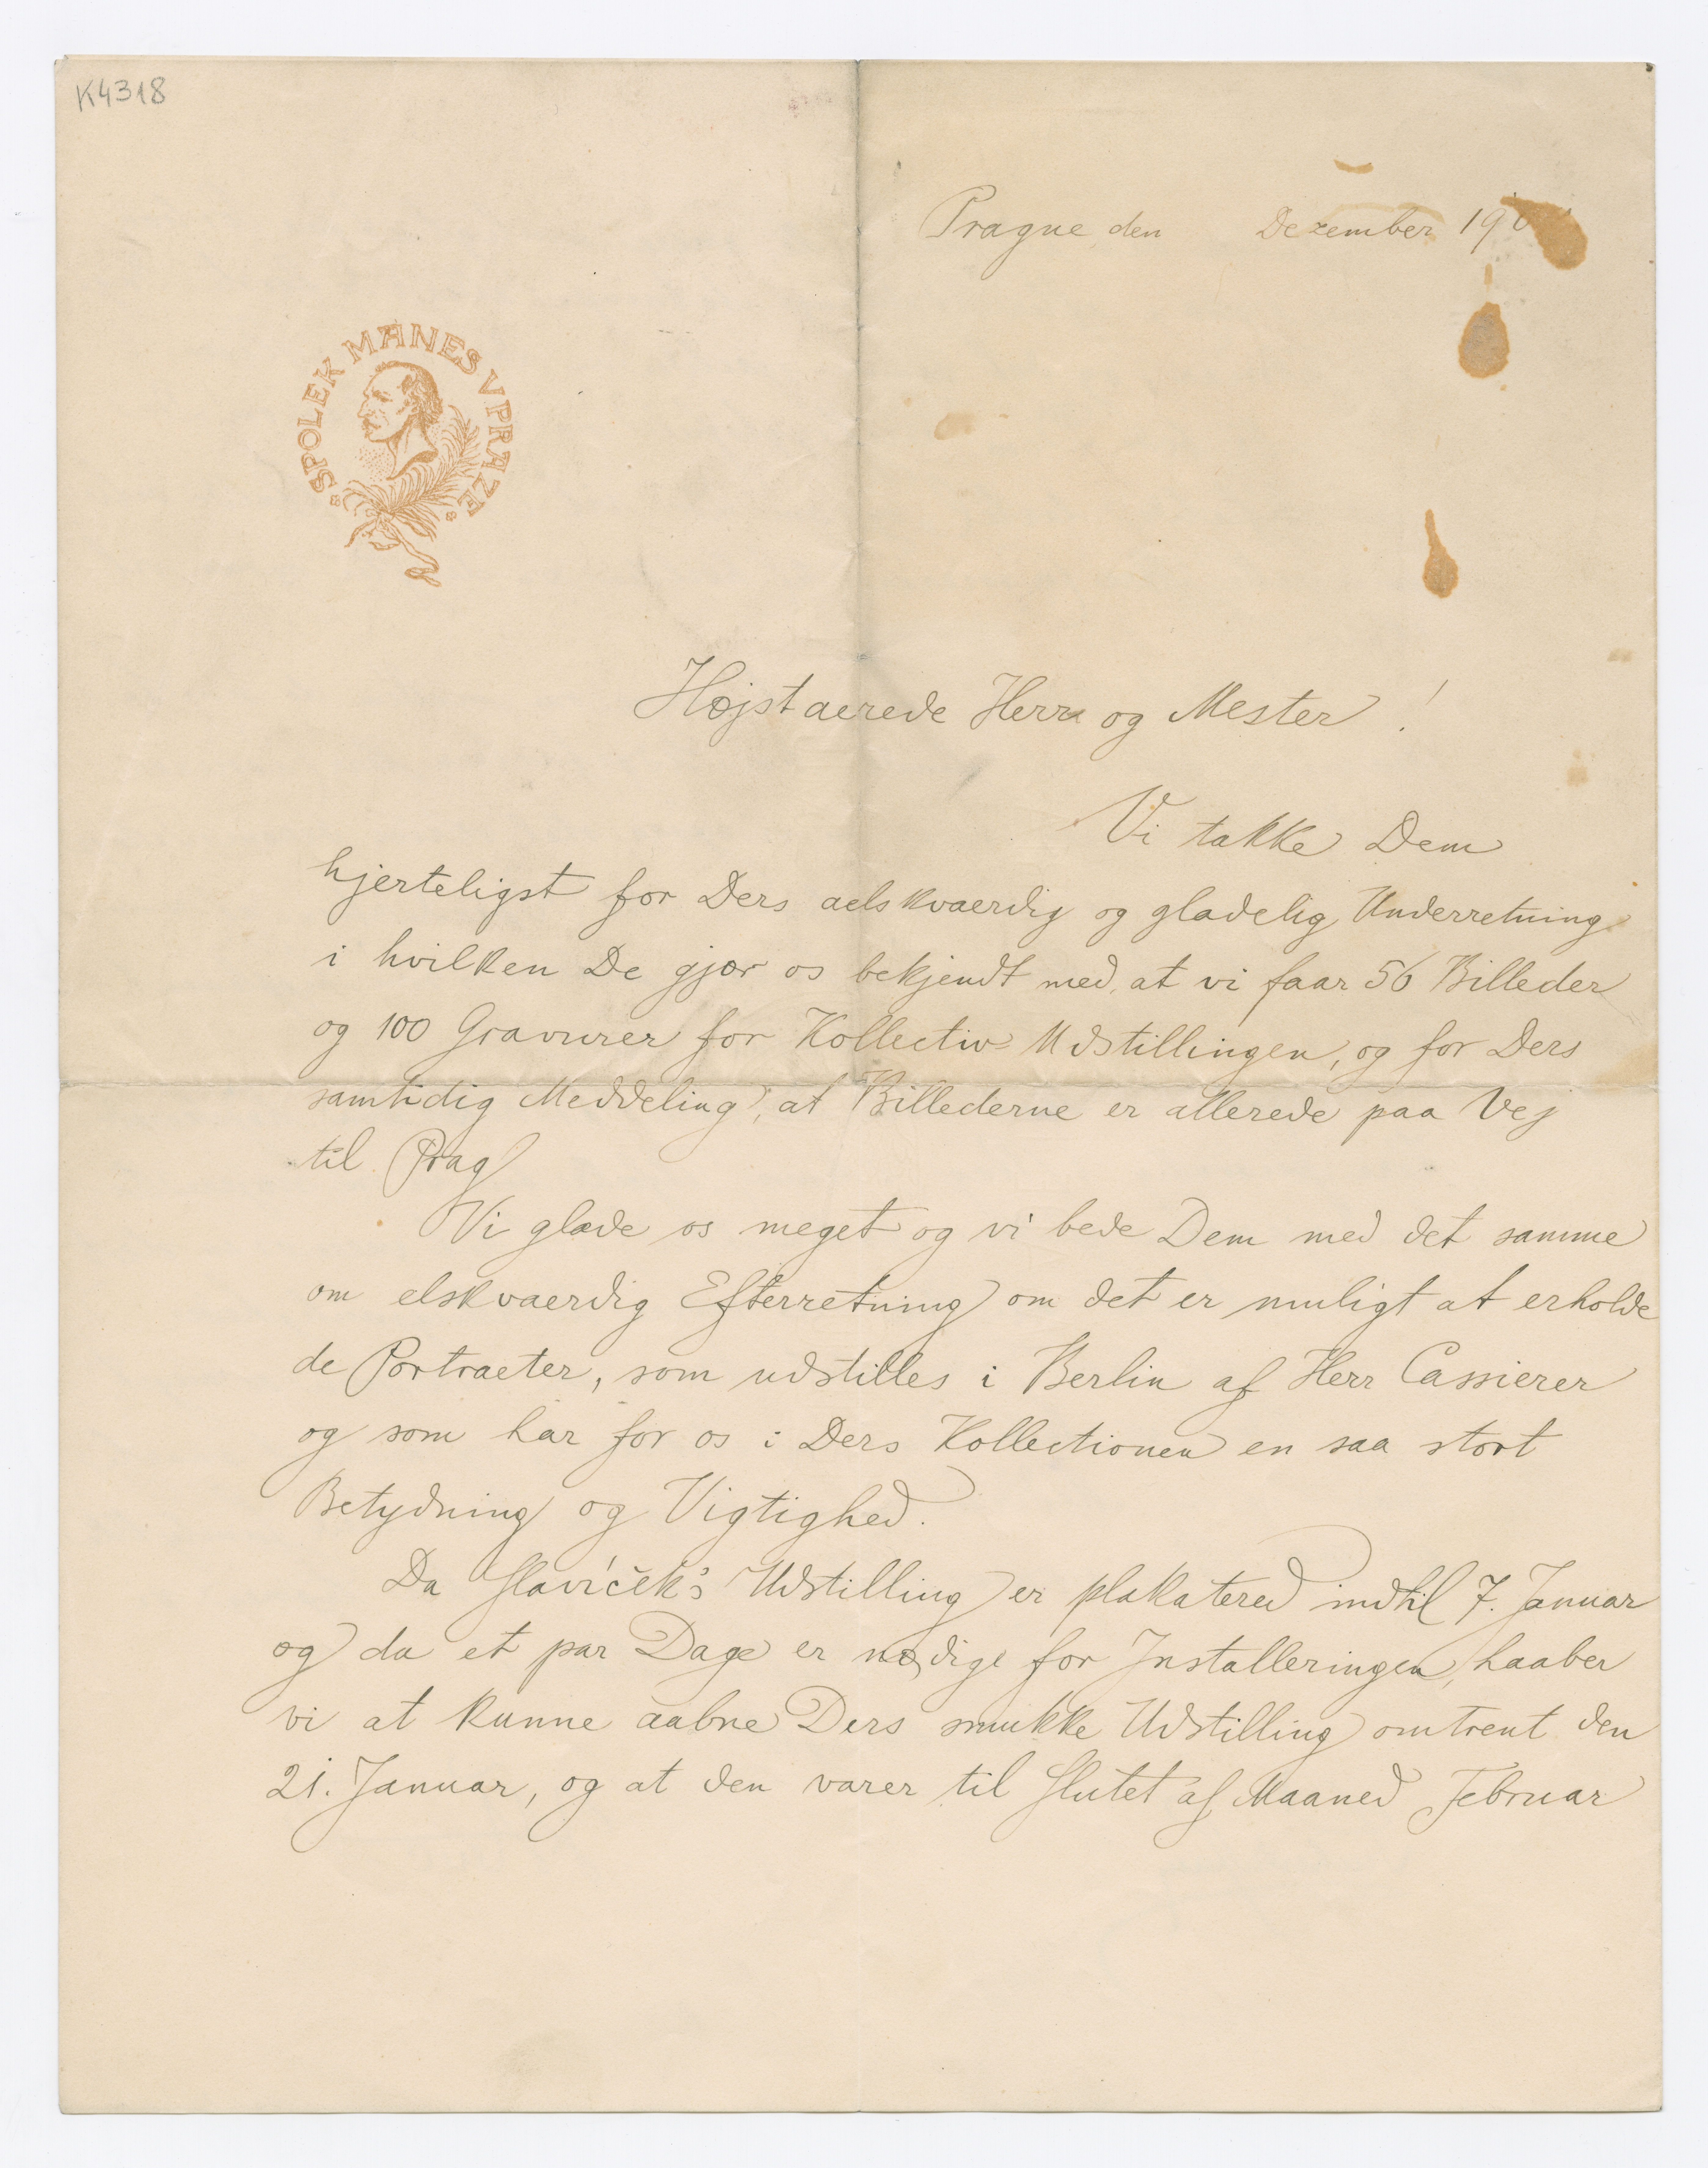 K4318
Prague, den Dezember 190
SPOLEK MANES V PRAZE
Højst aerede Herr og Mester!
Vi takke Dem
hjerteligst for Ders aelskvaerdig og gladelig Underretning
i hvilken De gjør os bekjendt med, at vi faar 56 Billeder
og 100 Gravurer for Kollectiv Udstillingen, og for Ders
samtidig Meddeling, at Billederne er allerede paa Vej
til Prag
Vi glade os meget og vi bede Dem med det samme
om elskvaerdig Efterretning om det er muligt at erholde
de Portraeter, som udstilles i Berlin af Herr Cassierer
og som har for os i Ders Kollectionen en saa stort
Betydning og Vigtighed.
Da Slavíček's Udstilling er plakatered indtil 7. Januar
og da et par Dage er nødige for Installeringen, haaber
vi at kunne aabne Ders smukke Udstilling omtrent den
21. Januar, og at den varer til Slutet af Maaned Februar